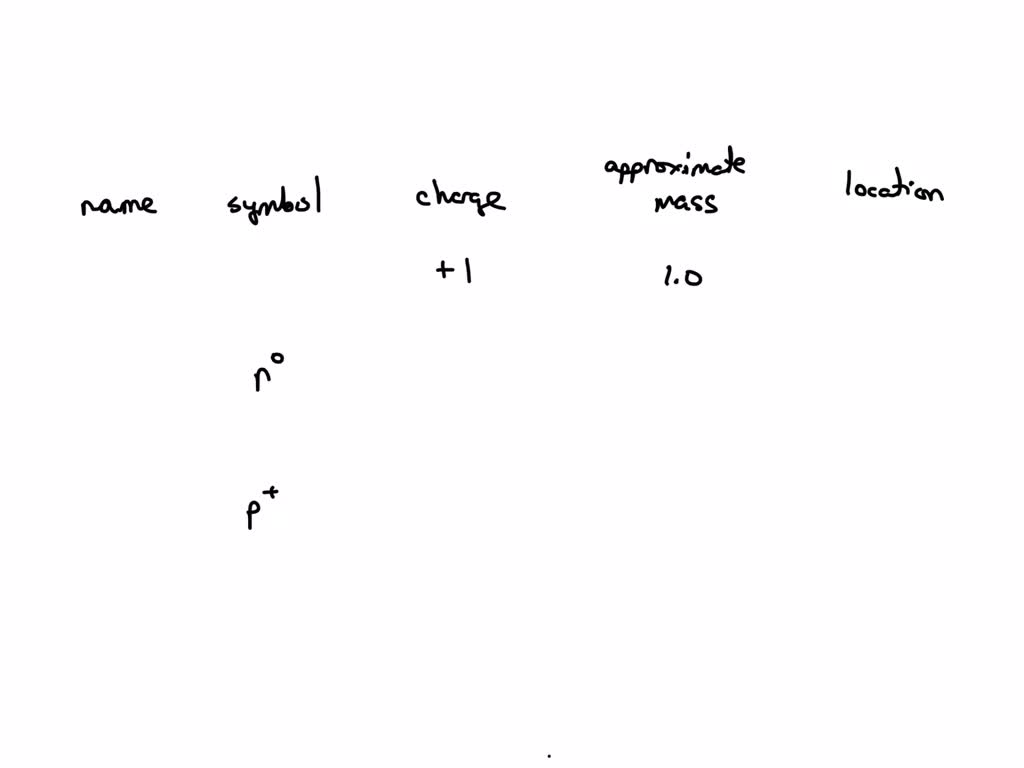 name symbol charge approximate mass location
+1 1.0
n⁰
p⁺